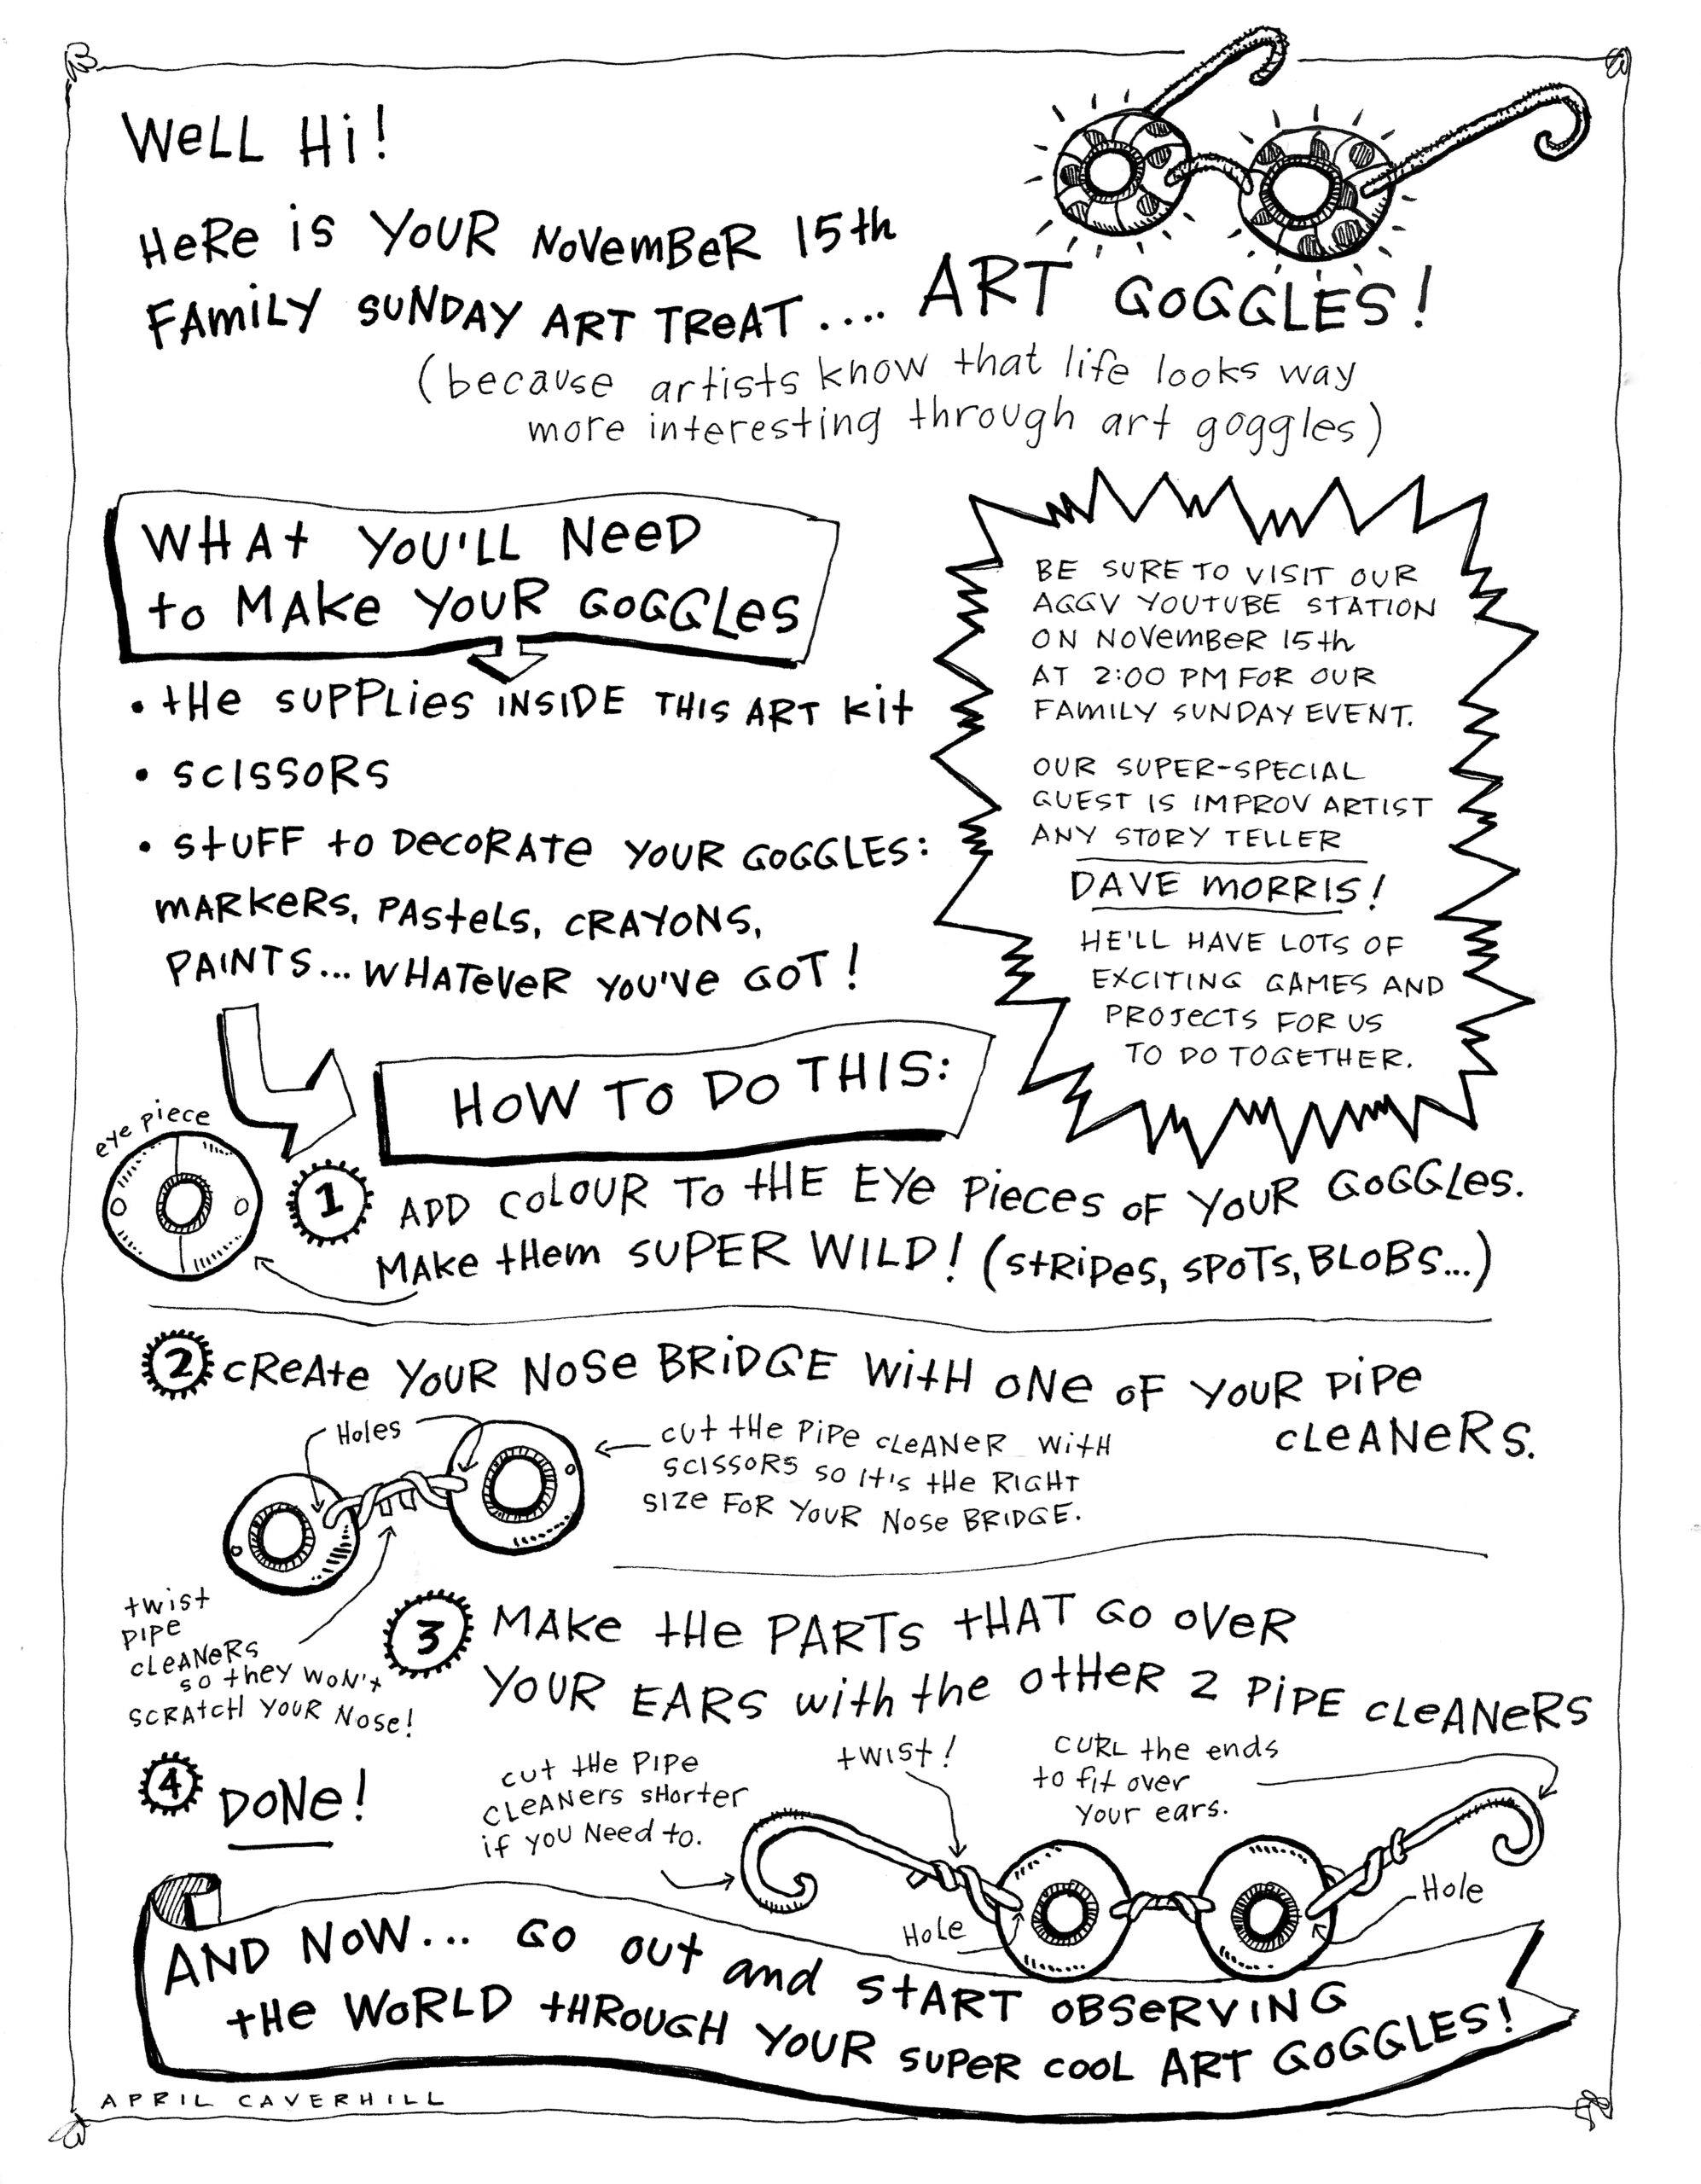 WELL Hi!
HERE iS YOUR NOVEMBER 15th
FAMiLY SUNDAY ART TREAT.... ART GOGGLES!
(because artists know that life looks way
more interesting through art goggles)
WHAT YOU'LL NEED
to MAKE YOUR GOGGLES
• tHe SUPPLies INSIDE THIS ART Kit
• SCISSORS
• StUFF to DECORATE YOUR GOGGLES:
MARKERS, PAStELS, CRAYONS,
PAINTS... WHATEVER YOU'VE GOT!
BE SURE TO VISIT OUR
AGGV YOUTUBE STATION
ON NOVEMBER 15th
AT 2:00 PM FOR OUR
FAMILY SUNDAY EVENT.
OUR SUPER-SPECIAL
GUEST IS IMPROV ARTIST
ANY STORY TELLER
DAVE MORRIS!
HE'LL HAVE LOTS OF
EXCITING GAMES AND
PROJECTS FOR US
TO DO TOGETHER.
HOW TO DO THIS:
eye piece
1 ADD COLOUR TO tHE EYE PIECES OF YOUR GOGGLES.
MAKE tHEM SUPER WILD! (StRiPES, SPOTS, BLOBS...)
2 CREATE YOUR NOSE BRiDGE WitH ONE OF YOUR PiPE
CLEANERS.
Holes
CUt tHE PiPE CLEANER WitH
SCISSORS SO It'S tHE RIGHT
SIZE FOR YOUR NOSE BRIDGE.
twist
PIPE
CLEANERS
SO tHEY WON't
SCRAtCH YOUR NOSE!
3 MAKE tHE PARTS tHAT GO OVER
YOUR EARS with the OtHER 2 PiPE CLEANERS
4 DONE!
CUt tHE PIPE
CLEANERS SHORTER
if YOU NEED to.
tWISt!
CURL the ends
to fit over
your ears.
Hole
Hole
AND NOW... GO OUt and StART OBSERVING
tHE WORLD tHROUGH YOUR SUPER COOL ART GOGGLES!
APRIL CAVERHILL